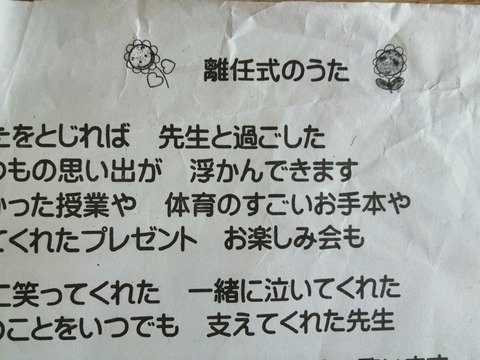 離任式のうた
をとじれば 先生と過ごした
つもの思い出が 浮かんできます
かった授業や 体育のすごいお手本や
てくれたプレゼント お楽しみ会も
に笑ってくれた 一緒に泣いてくれた
のことをいつでも 支えてくれた先生